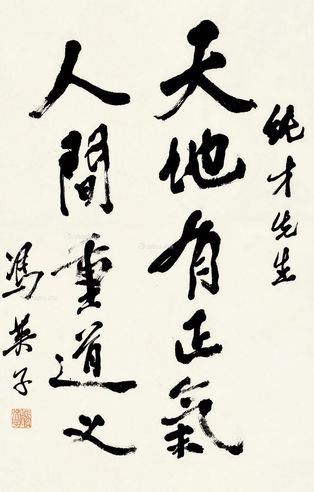 纯才先生
天地有正氣
人間重道义
馮英子